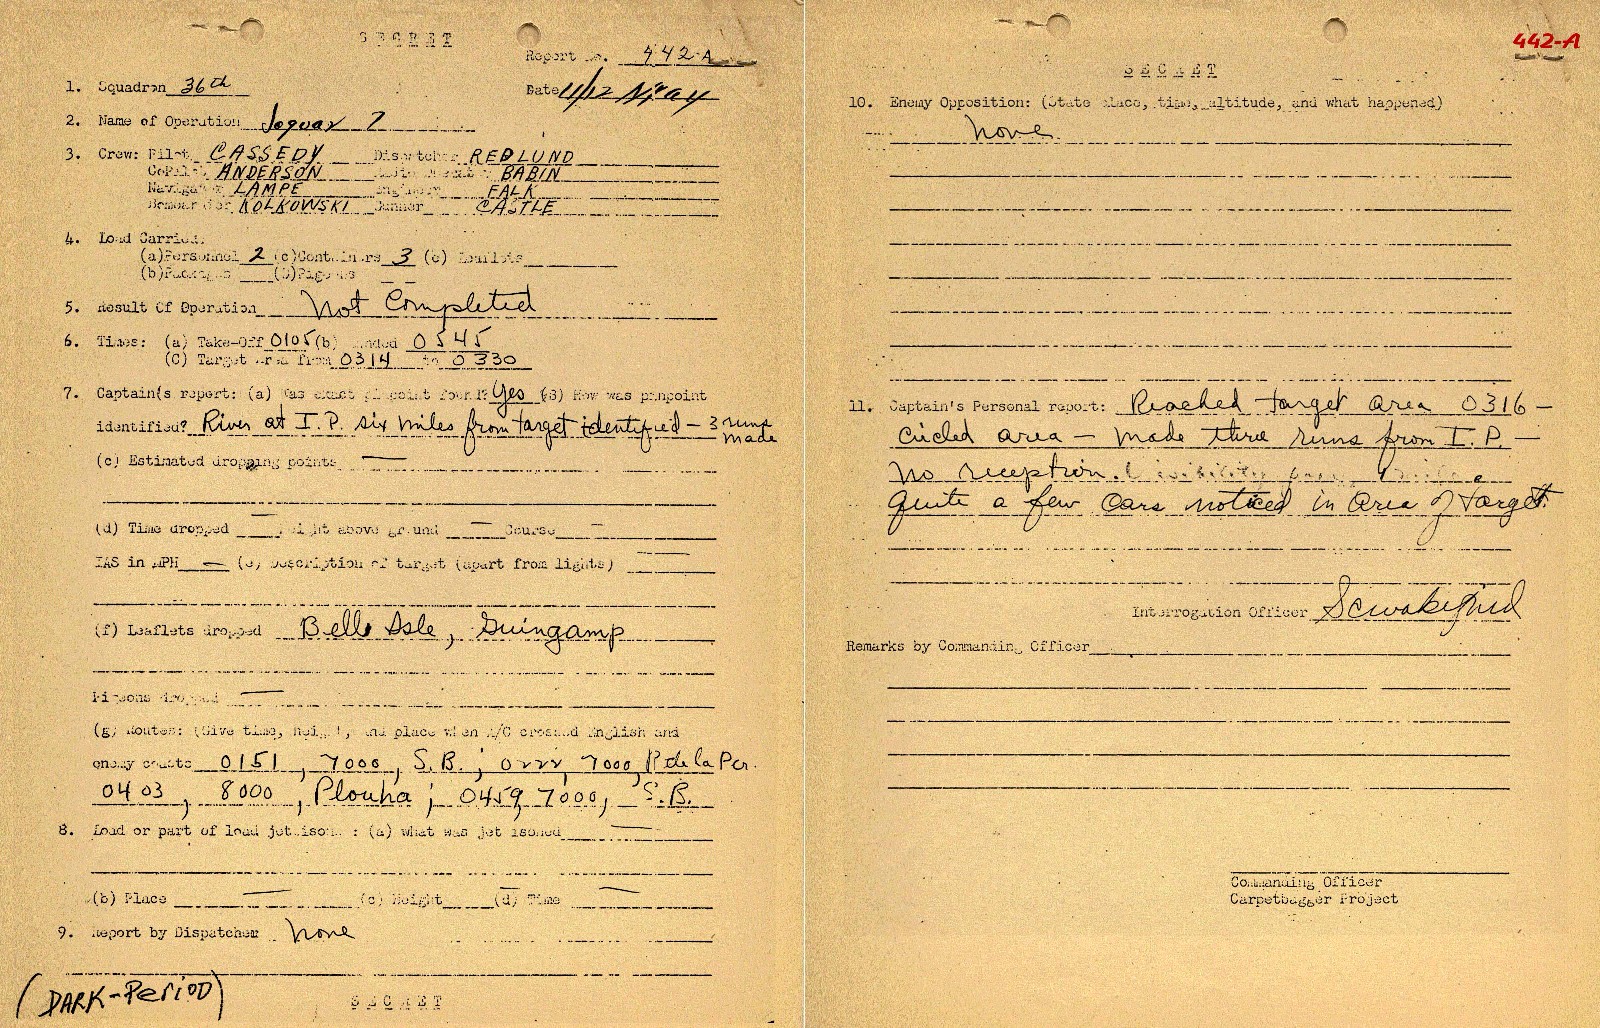 SECRET
Report No. 442-A
1. Squadron 36th
Date 11/12 May
2. Name of Operation Jaguar 7
3. Crew: Pilot CASSEDY Dispatcher REDLUND
CoPilot ANDERSON Radio Operator BABIN
Navigator LAMPE Engineer FALK
Bombardier KOLKOWSKI Gunner CASTLE
4. Load Carried:
(a)Personnel 2 (c)Containers 3 (e) Leaflets
(b)Packages (D)Pigeons
5. Result Of Operation Not Completed
6. Times: (a) Take-Off 0105 (b) Landed 0545
(C) Target Area from 0314 to 0330
7. Captain's report: (a) Was exact pinpoint found? Yes (B) How was pinpoint
identified? River at I.P. six miles from target identified - 3 runs made
(c) Estimated dropping points
(d) Time dropped Height above ground Course
IAS in MPH (e) Description of target (apart from lights)
(f) Leaflets dropped Belle Isle, Guingamp
Pigeons dropped
(g) Routes: (Give time, height, and place when A/C crossed English and
enemy coasts 0151, 7000, S.B.; 0222, 7000, P. de la Per.
0403, 8000, Plouha; 0459, 7000, S.B.
8. Load or part of load jettisoned: (a) what was jettisoned
(b) Place (c) Height (d) Time
9. Report by Dispatcher None
(DARK-PERIOD)
SECRET
442-A
SECRET
10. Enemy Opposition: (State place, time, altitude, and what happened)
None.
11. Captain's Personal report: Reached target area 0316 -
circled area - made three runs from I.P. -
No reception. Visibility
quite a few cars noticed in area of target.
Interrogation Officer
Remarks by Commanding Officer
Commanding Officer
Carpetbagger Project